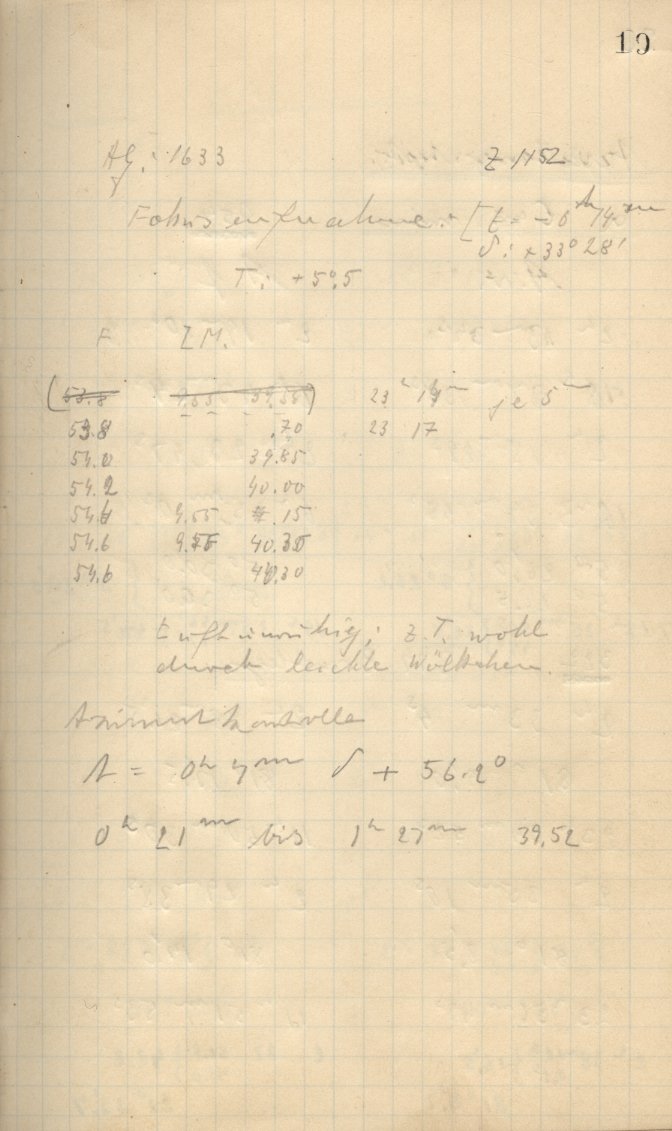 19
Ag: 1633 Z 1452
Fokusaufnahme: [t = -0h 14m
δ: +33° 28'
T: +5°,5
F Z M.
(53.8 9,55 39,55) 23h 14m je 5m
53.8 .70 23 17
54.0 39.85
54.2 40.00
54.4 9.55 .15
54.6 9.55 40.35
54.6 40.30
Luft unruhig; z.T. wohl
durch leichte Wölkchen.
Azimutkontrolle
t = 0h 7m δ + 56.2°
0h 21m bis 1h 27m 39,52